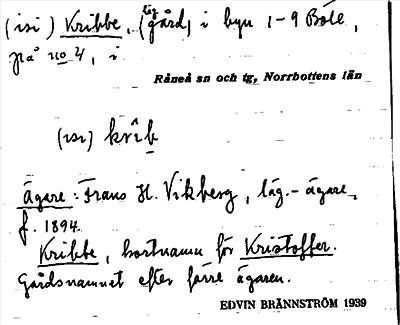 (isi) Kribbe, (läg.gård) i byn 1-9 Böle,
på no 4, i
Råneå sn och tg, Norrbottens län
(isi) krib
Ägare: Frans H. Vikberg, läg.-ägare,
f. 1894.
Kribbe, kortnamn för Kristoffer.
Gårdsnamnet efter förre ägaren.
EDVIN BRÄNNSTRÖM 1939